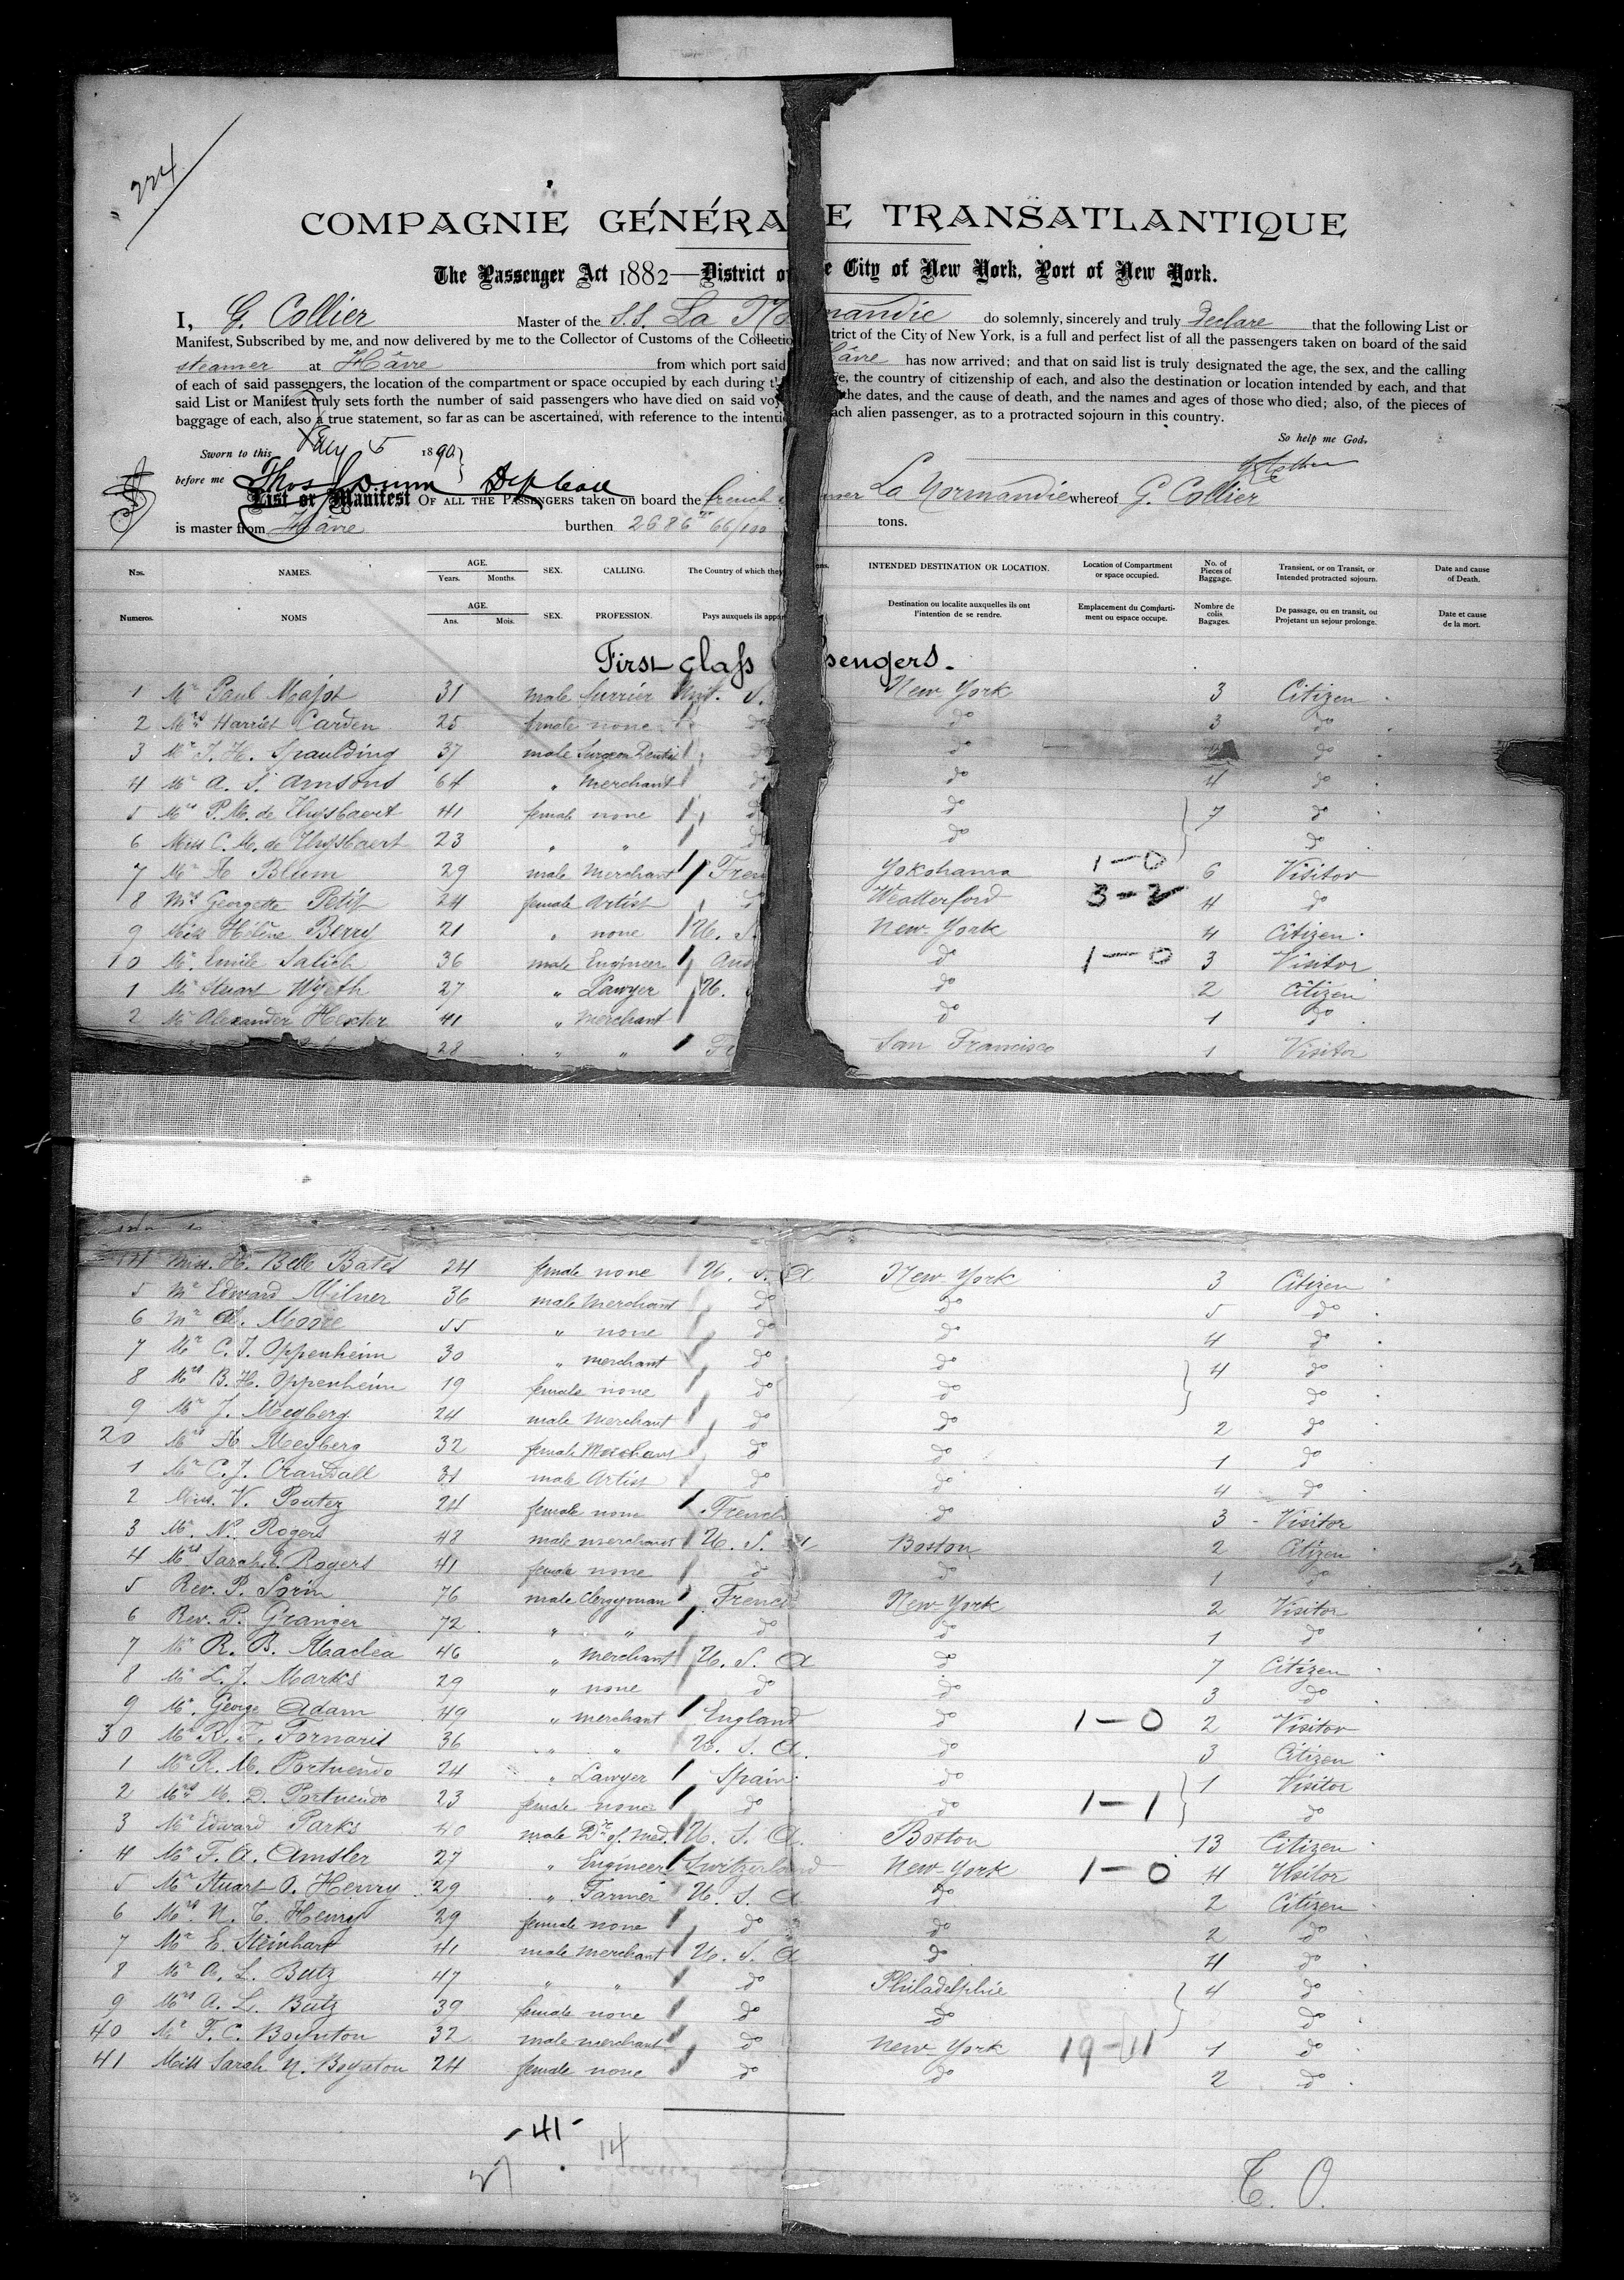 224
COMPAGNIE GÉNÉRA E TRANSATLANTIQUE
The Passenger Act 1882—District o e City of New York, Port of New York.
I, G. Collier Master of the S.S. La No mandie do solemnly, sincerely and truly declare that the following List or
Manifest, Subscribed by me, and now delivered by me to the Collector of Customs of the Collectio trict of the City of New York, is a full and perfect list of all the passengers taken on board of the said
steamer at Hâvre from which port said âvre has now arrived; and that on said list is truly designated the age, the sex, and the calling
of each of said passengers, the location of the compartment or space occupied by each during t e, the country of citizenship of each, and also the destination or location intended by each, and that
said List or Manifest truly sets forth the number of said passengers who have died on said voy the dates, and the cause of death, and the names and ages of those who died; also, of the pieces of
baggage of each, also a true statement, so far as can be ascertained, with reference to the intenti ach alien passenger, as to a protracted sojourn in this country.
So help me God,
Sworn to this 5 1890
before me Thos Dunn Dep
G. Collier
List or Manifest OF ALL THE PASSENGERS taken on board the french mer La Normandie whereof G. Collier
is master from Hâvre burthen 2686 66/100 tons.
Nos. NAMES. AGE. Years. Months. SEX. CALLING. The Country of which they ns. INTENDED DESTINATION OR LOCATION. Location of Compartment or space occupied. No. of Pieces of Baggage. Transient, or on Transit, or Intended protracted sojourn. Date and cause of Death.
Numeros. NOMS AGE. Ans. Mois. SEX. PROFESSION. Pays auxquels ils appar Destination ou localite auxquelles ils ont l'intention de se rendre. Emplacement du Comparti-ment ou espace occupe. Nombre de colis. Bagages. De passage, ou en transit, ou Projetant un sejour prolonge. Date et cause de la mort.
First Class sengers.
1 Mr Paul Major 31 male furrier Unit. S. New York 3 Citizen
2 Mrs Harriet Carden 25 female none do do 3 do
3 Mr J. H. Spaulding 37 male Surgeon Dentist do do
4 Mr A. S. Amsons 64 " Merchant do do 4 do
5 Mrs P. M. de Thysbaert 41 female none do 7 do
6 Miss C. M. de Thysbaert 23 " " do do
7 Mr A Blum 29 male Merchant Fren Yokohama 1-0 6 Visitor
8 Georgette Petit 24 female Artist Weatherford 3-2 4 do
9 Miss Hélène Berry 21 " none U. S. New-York 4 Citizen
10 Mr Emile Salich 36 male Engineer Aus do 1-0 3 Visitor
1 Mr Stuart Wyeth 27 " Lawyer U. do 2 Citizen
2 Mr Alexander Hexter 41 " Merchant do 1 do
28 " " San Francisco 1 Visitor
14 Miss. H. Belle Bates 24 female none U. S. A New-York 3 Citizen
5 Mr Edward Milner 36 male Merchant do do 5 do
6 Mr Moore 55 " none do do 4 do
7 Mr C. J. Oppenheim 30 " merchant do do 4 do
8 Mrs B. H. Oppenheim 19 female none do do do
9 Mr J. Meyberg 24 male Merchant do do 2 do
20 Mrs H Meyberg 32 female Merchant do do 1 do
1 Mr C. J. Crandall 31 male Artist do do 4 do
2 Miss. V. 24 female none French do 3 Visitor
3 Mr N. Rogers 48 male merchant U. S. A Boston 2 Citizen
4 Mrs Sarah Rogers 41 female none do do 1 do
5 Rev. P. Sorin 76 male Clergyman French New-York 2 Visitor
6 Rev. P. Granger 72 " " do do 1 do
7 Mr R. B. Maclea 46 " Merchant U. S. A do 7 Citizen
8 Mr L. J. Marks 29 " none do do 3 do
9 Mr George Adam 49 " merchant England do 1-0 2 Visitor
30 Mr R. F. Fornaris 36 " " U. S. A. do 3 Citizen
1 Mr R. M. Portuendo 24 " Lawyer Spain do 1 Visitor
2 Mrs M. D. Portuendo 23 female none do do 1-1 do
3 Mr Edward Parks 40 male Dr of Med. U. S. A. Boston 13 Citizen
4 Mr F. A. Amsler 27 " Engineer Switzerland New-York 1-0 4 Visitor
5 Mr Stuart O. Henry 29 " Farmer U. S. A do 2 Citizen
6 Mrs N. Henry 29 female none do do 2 do
7 Mr E. Steinhart 41 male merchant U. S. A do 4 do
8 Mr A. L. Butz 47 " " do Philadelphie 4 do
9 Mrs A. L. Butz 39 female none do do do
40 Mr F. C. Boynton 32 male merchant do New-York 19-11 1 do
41 Miss Sarah N. Boynton 24 female none do do 2 do
-41-
14